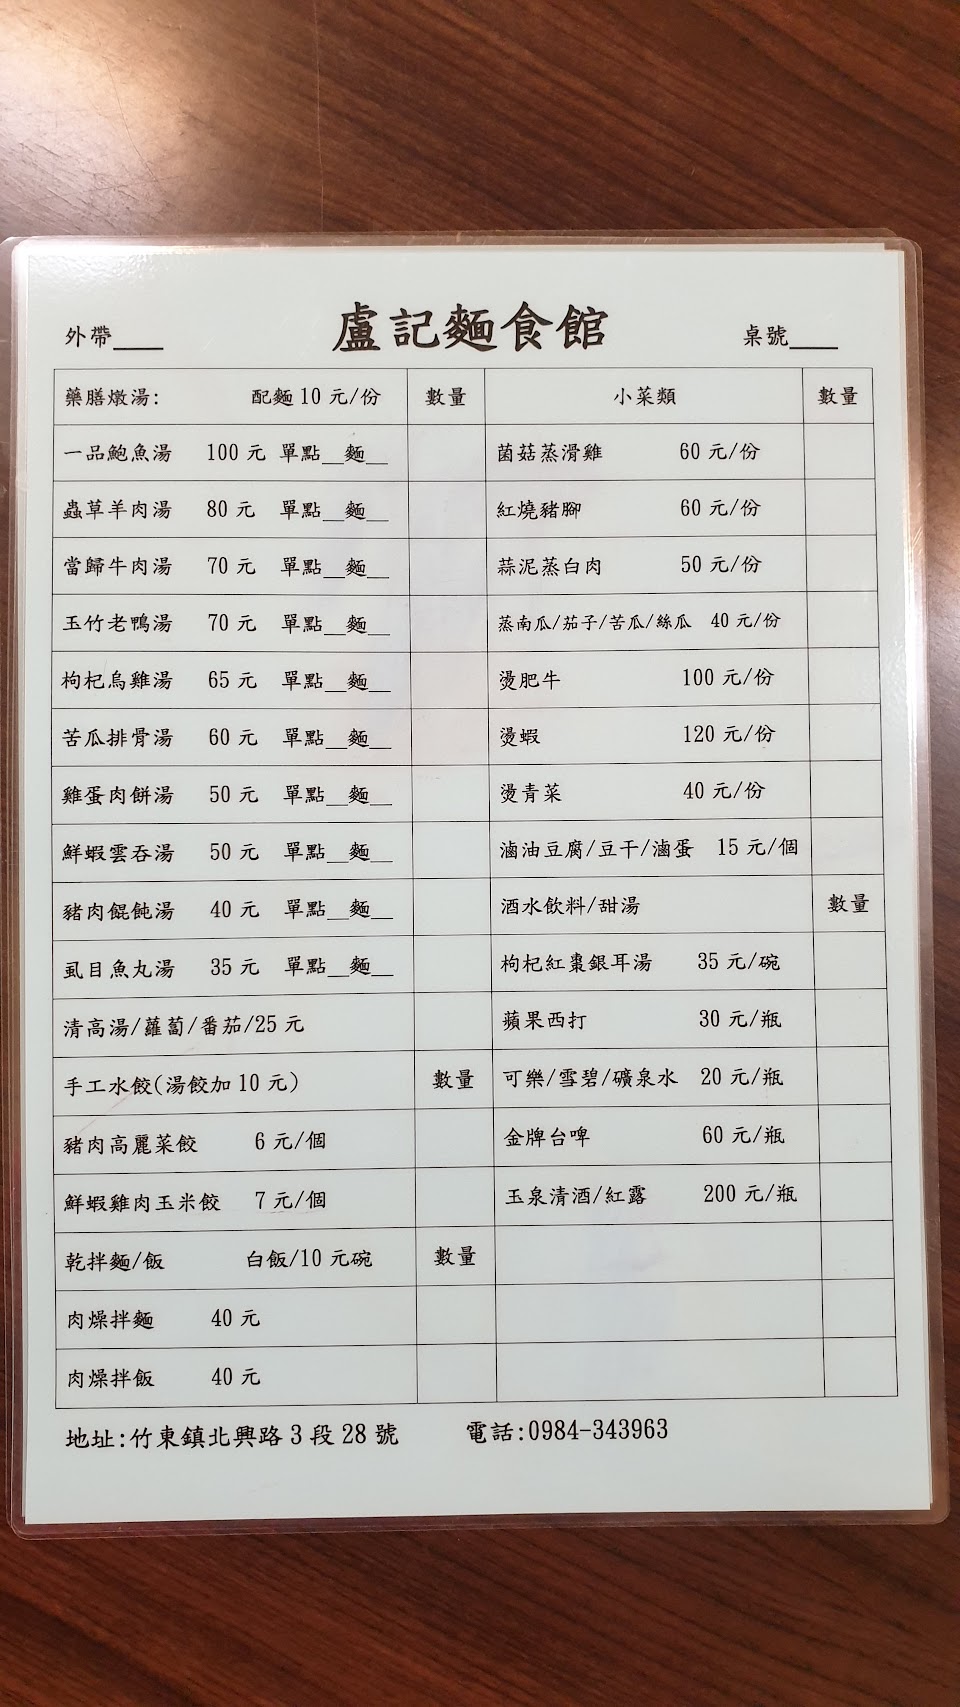 盧記麵食館
外帶___ 桌號___
藥膳燉湯: 配麵10元/份 數量 小菜類 數量
一品鮑魚湯 100元 單點__麵__ 菌菇蒸滑雞 60元/份
蟲草羊肉湯 80元 單點__麵__ 紅燒豬腳 60元/份
當歸牛肉湯 70元 單點__麵__ 蒜泥蒸白肉 50元/份
玉竹老鴨湯 70元 單點__麵__ 蒸南瓜/茄子/苦瓜/絲瓜 40元/份
枸杞烏雞湯 65元 單點__麵__ 燙肥牛 100元/份
苦瓜排骨湯 60元 單點__麵__ 燙蝦 120元/份
雞蛋肉餅湯 50元 單點__麵__ 燙青菜 40元/份
鮮蝦雲吞湯 50元 單點__麵__ 滷油豆腐/豆干/滷蛋 15元/個
豬肉餛飩湯 40元 單點__麵__ 酒水飲料/甜湯 數量
虱目魚丸湯 35元 單點__麵__ 枸杞紅棗銀耳湯 35元/碗
清高湯/蘿蔔/番茄/25元 蘋果西打 30元/瓶
手工水餃(湯餃加10元) 數量 可樂/雪碧/礦泉水 20元/瓶
豬肉高麗菜餃 6元/個 金牌台啤 60元/瓶
鮮蝦雞肉玉米餃 7元/個 玉泉清酒/紅露 200元/瓶
乾拌麵/飯 白飯/10元碗 數量
肉燥拌麵 40元
肉燥拌飯 40元
地址:竹東鎮北興路3段28號 電話:0984-343963